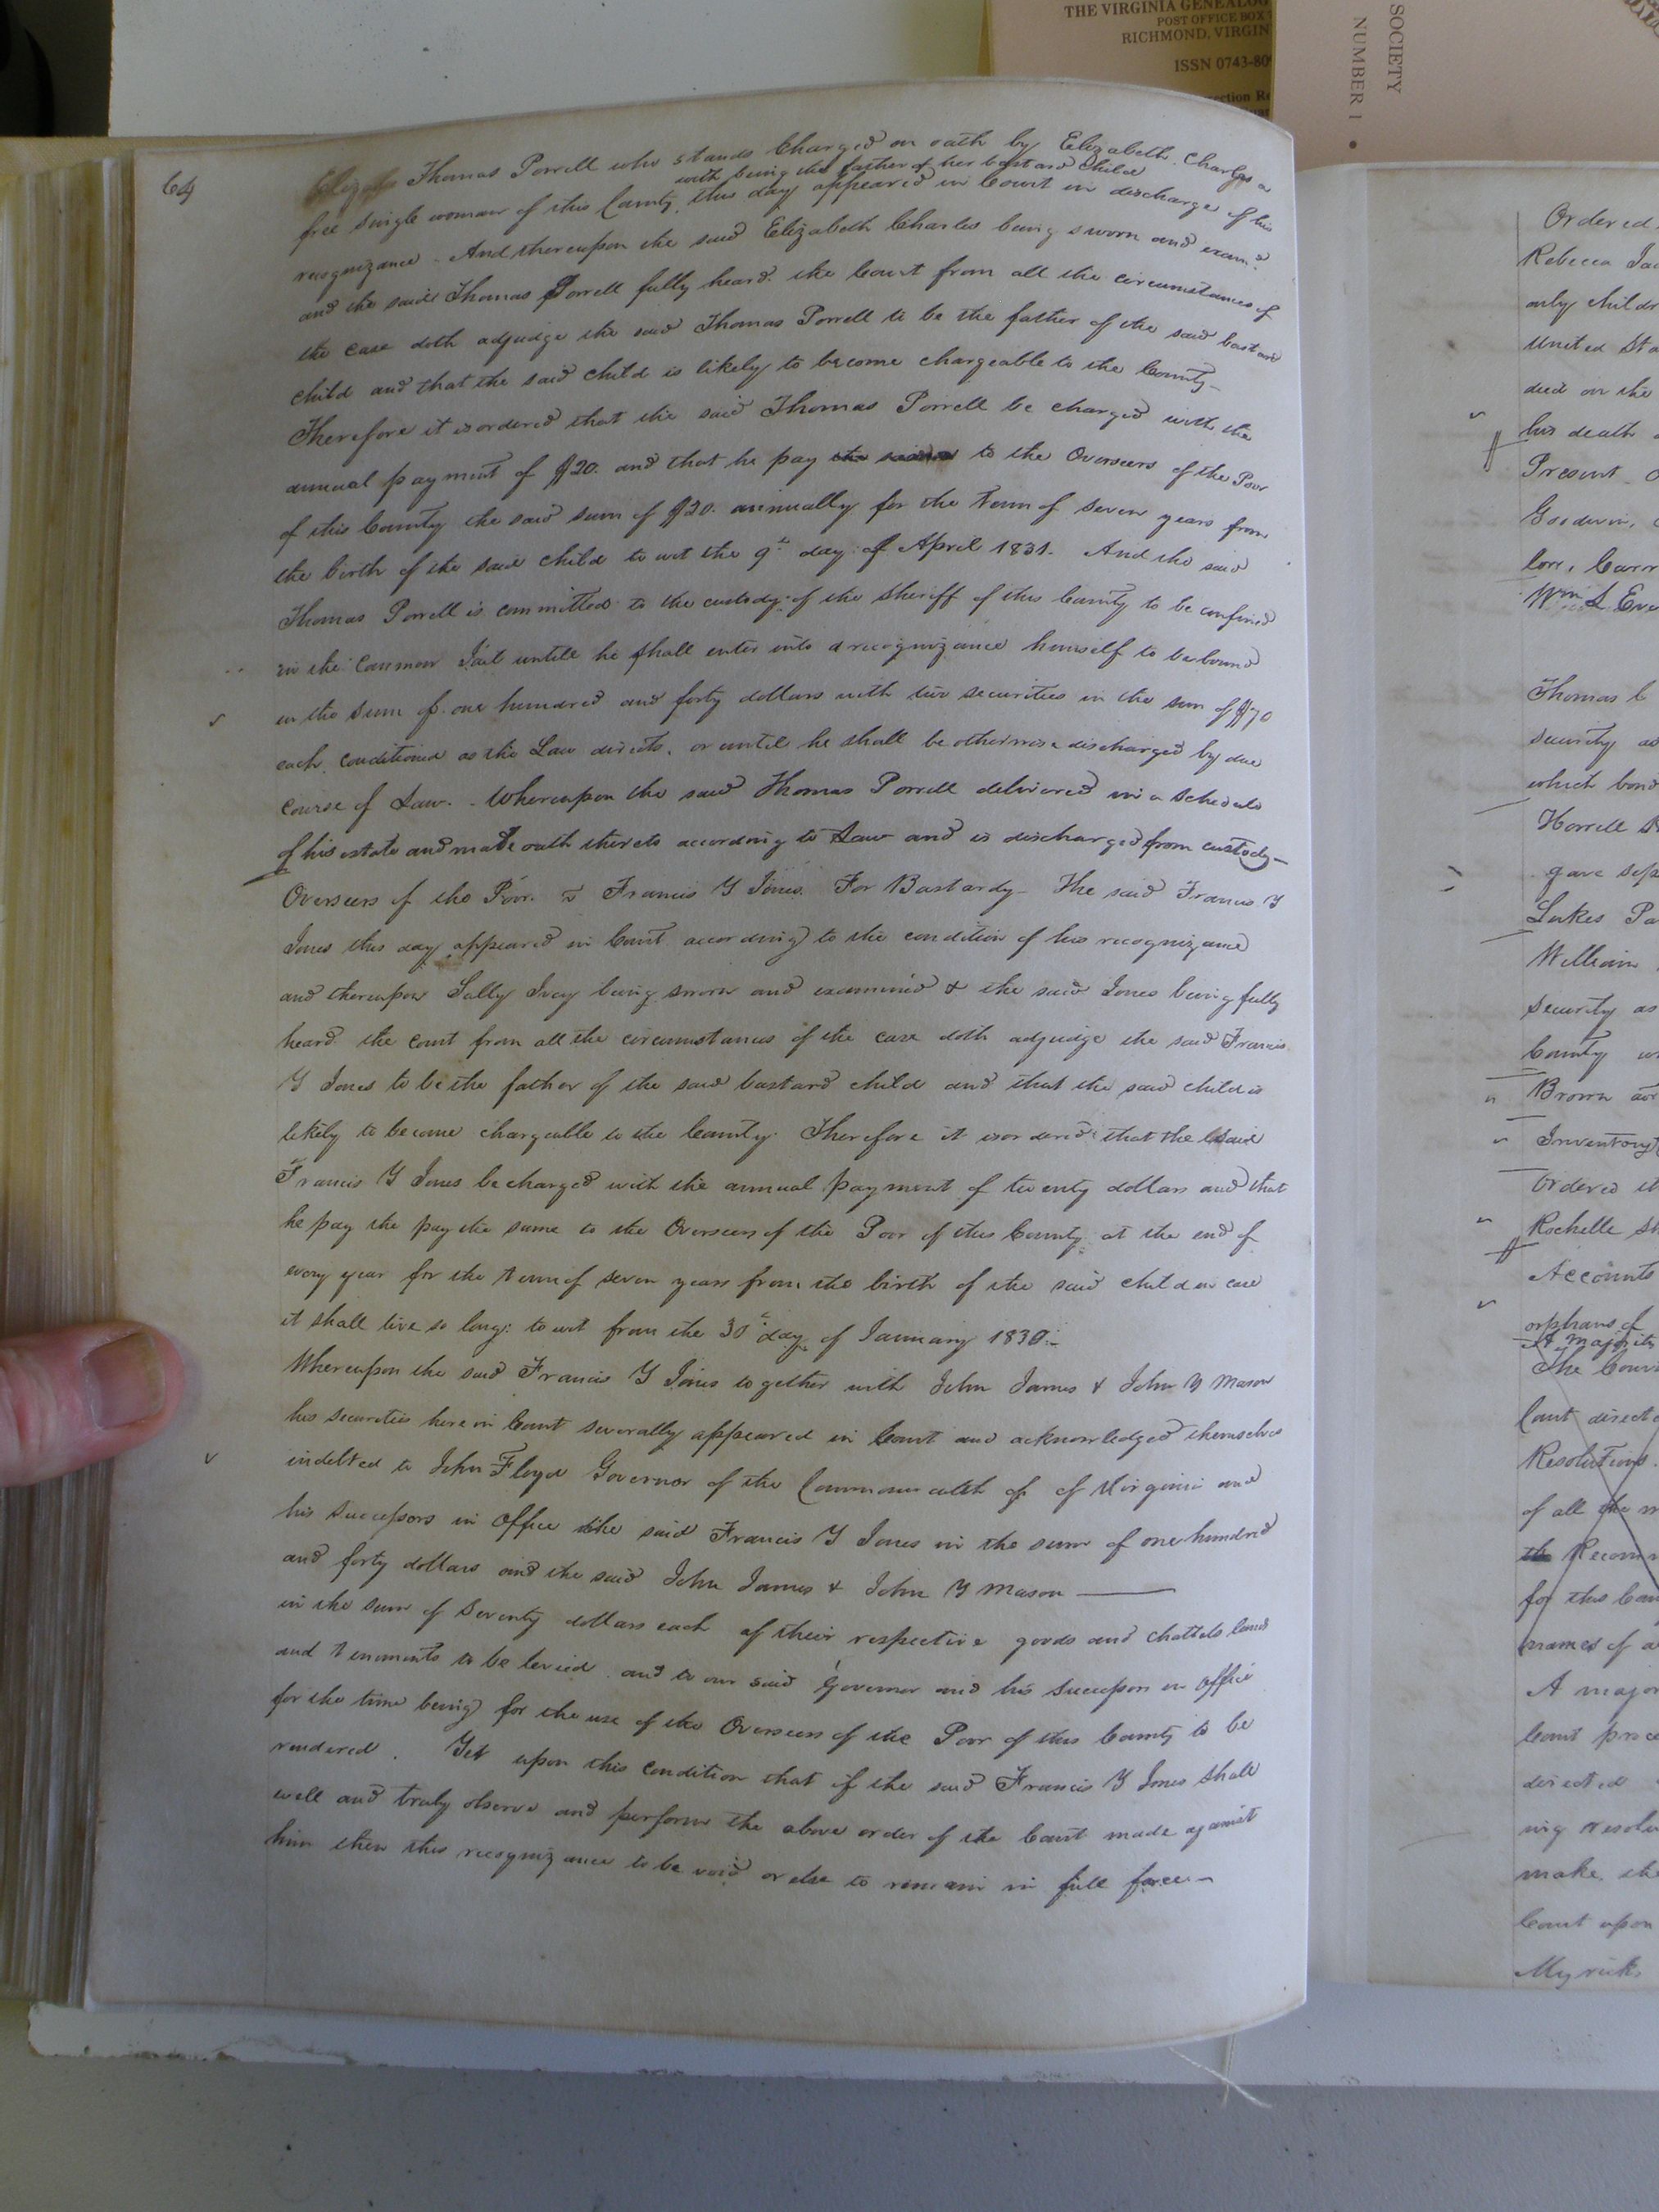 THE VIRGINIA GENEALOG
POST OFFICE BOX
RICHMOND, VIRGIN
ISSN 0743-80
ection Re
SOCIETY
NUMBER 1 •
64
Thomas Porrell who stands Charged on oath by Elizabeth Charles a
with being the father of her bastard Child
free single woman of this County, this day appeared in Court in discharge of his
recognizance - And thereupon the said Elizabeth Charles being sworn and examd.
and the said Thomas Porrell fully heard. the Court from all the circumstances of
the case doth adjudge the said Thomas Porrell to be the father of the said bastard
child and that the said child is likely to become chargeable to the County-
Therefore it is ordered that the said Thomas Porrell be charged with the
annual payment of $20. and that he pay the to the Overseers of the Poor
of this County the said sum of $20. annually for the term of seven years from
the birth of the said child to wit the 9th day of April 1831. And the said
Thomas Porrell is committed to the custody of the Sheriff of this County to be confined
in the Common Jail untill he shall enter into a recognizance himself to be bound
in the sum of one hundred and forty dollars with two securities in the sum of $70
each, conditioned as the Law directs, or until he shall be otherwise discharged by due
course of Law. - Whereupon the said Thomas Porrell delivered in a Schedule
of his estate and made oath thereto according to Law and is discharged from custody-
Overseers of the Poor. vs Francis Y Jones. For Bastardy- The said Francis Y
Jones this day appeared in Court according to the condition of his recognizance
and thereupon Sally Ivey being sworn and examined & the said Jones being fully
heard. the court from all the circumstances of the case doth adjudge the said Francis
Y Jones to be the father of the said bastard child and that the said child is
likely to become chargeable to the County. Therefore it is ordered that the said
Francis Y Jones be charged with the annual payment of twenty dollars and that
he pay the pay the same to the Overseers of the Poor of this County at the end of
every year for the term of seven years from the birth of the said child in case
it shall live so long: to wit from the 30th day of January 1830.-
Whereupon the said Francis Y Jones together with John James & John Y Mason
his securities here in Court severally appeared in Court and acknowledged themselves
indebted to John Floyd Governor of the Commonwealth of of Virginia and
his successors in office the said Francis Y Jones in the sum of one hundred
and forty dollars and the said John James & John Y Mason
in the sum of Seventy dollars each of their respective goods and chattels lands
and tenements to be levied. and to our said Governor and his successors in office
for the time being for the use of the Overseers of the Poor of this County to be
rendered. Yet upon this condition that if the said Francis Y Jones shall
well and truly observe and perform the above order of the Court made against
him then this recognizance to be void or else to remain in full force.-
Ordered
Rebecca
only childr
United Sta
died on the
his death
Present
Goodwin,
Wm
Thomas
security as
which bond
Horrell
gave
Lukes
William
Security as
County
Brown
Inventory
Ordered
Rochelle Sh
Accounts
orphans of
A majority
The Cour
Court direct
Resolutions.
of all the
the
for this
names of a
A major
Court
directed
make, the
Court upon
Myrick